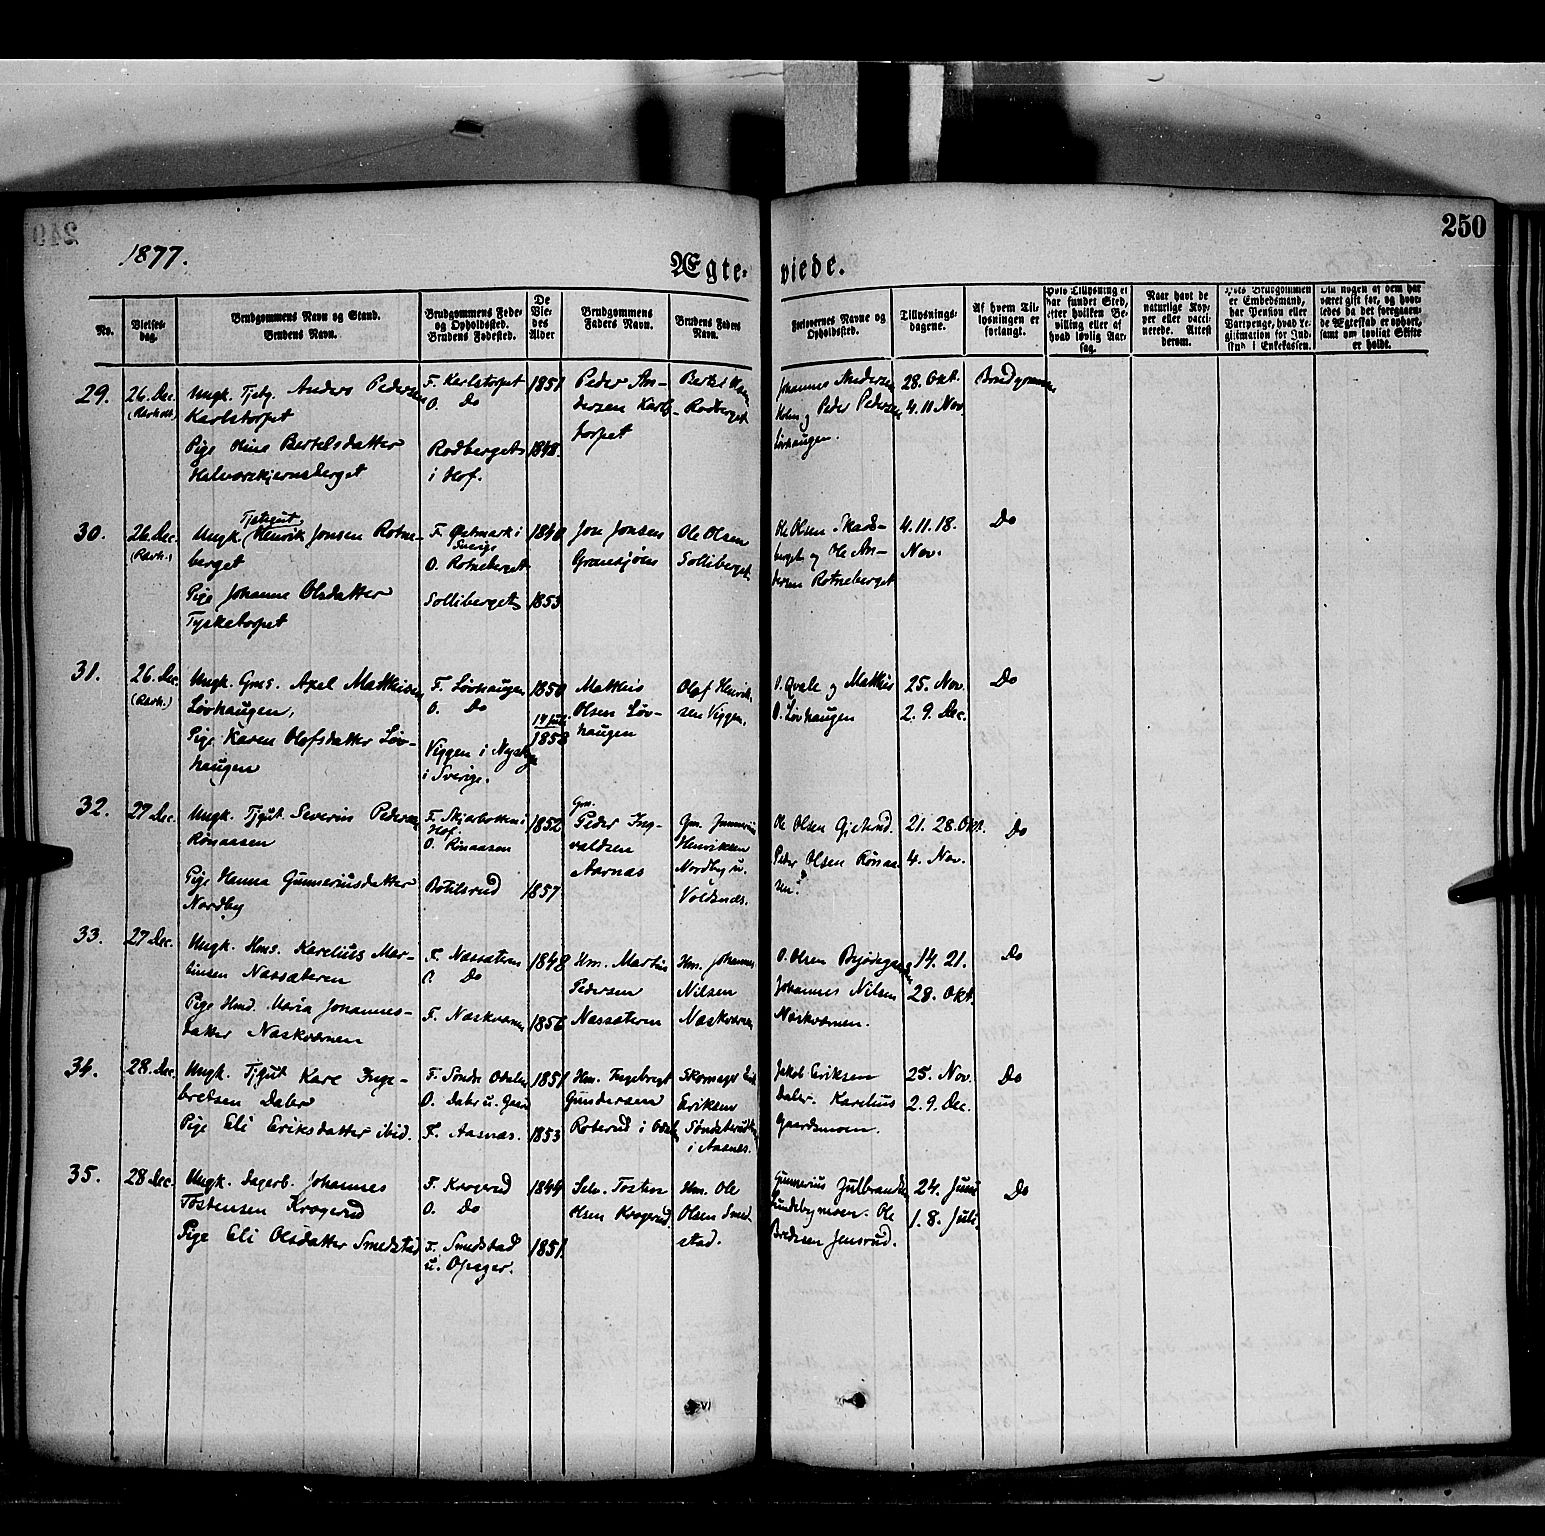 250
1877.
Ægteviede.
No.
Vielses-
dag.
Brudgommens Navn og Stand.
Brudens Navn.
Brudgommens Føde-
og Opholdssted.
Brudens Fødested.
De
Vie-
des
Alder
Brudgommens
Faders Navn.
Brudens Faders
Navn.
Forlovernes Navne og
Opholdssted.
Tillysnings-
dagene.
Af hvem Til-
lysningen er
forlangt.
Hvis Tillysning ei
har fundet Sted,
efter hvilken Be-
villing eller af
hvad lovlig Aar-
sag.
Naar havt de
naturlige Kop-
per eller vacci-
nerede. Attest
derom.
Hvis Brudgommen
er Embedsmand,
har Pension eller
Vartpenge, hvad Le-
gitimation for Ind-
skud i Enkekassen.
Om nogen af dem har
været gift før, og hvor-
ledes da det foregaaen-
de Ægteskab er ophørt,
samt om lovligt Skifte
er holdt.
29.
26. Dec.
Ungk. Tjstg. Anders Pedersen
Karlstorpet
Pige Stine Bertelsdatter
Halvorskjernsberget
F. Karlstorpet
O. Do
Rodberget
i Hof.
1851
1848.
Peder An-
dersen Karls-
torpet
Bertel
Rodberget
Johannes Andersen
Holm og Peder Pedersen
Løvhaugen.
28. Okt.
4. 11 Nov.
Brudgommen
30.
26. Dec.
Ungk. Tjstgut Henrik Jonsen Rotne-
berget
Pige Johanne Olsdatter
Tysketorpet
F. Østmark i
Sverige
O. Rotneberget
Solliberget
1840
1853
Jon Jonsen
Granesjøen
Ole Olsen
Solliberget
Ole Olsen Skads-
berget og Ole An-
dersen Rotneberget
4. 11. 18.
Nov.
Do
31.
26. Dec.
Ungk. Grds. Axel Mathisen
Løvhaugen,
Pige Karen Olofsdatter Løv-
haugen
F. Løvhaugen
O. Do
Viggen i Nyskoga
i Sverige.
1850
1853
Mathis
Olsen Løv-
haugen
Olof Henrik-
sen Viggen.
O. Qvale og Mathis
O. Løvhaugen
25. Nov.
2. 9. Dec.
Do
32.
27 Dec.
Ungk. Tjgut. Severin Pedersen
Rønaasen
Pige Hanna Gunneriusdatter
Nordby
F. Skjærbotten i
Hof.
O. Rønaasen
Botilsrud
1852
1857
Grn.
Peder Ing-
valdsen
Aarnæs
Gm. Gunnerius
Henriksen
Nordby u.
Voldsnæs.
Ole Olsen Gjeterud.
Peder Olsen Rønaa-
sen.
21. 28. Okt.
4. Nov.
Do
33.
27 Dec.
Ungk. Hms. Karelius Mar-
tinsen Nassæteren
Pige Hmd. Maria Johannes-
datter Naskværnen
F. Nassæteren
O. Do
F. Naskværnen
1848
1856
Hm. Martin
Pedersen
Nassæteren
Hm. Johannes
Nilsen
Naskværnen
O. Olsen
Johannes Nilsen
Naskværnen.
14. 21.
28. Okt.
Do
34.
28. Dec.
Ungk. Tjgut Kare Inge-
bretsen Daler
Pige Eli Eriksdatter ibid.
F. Søndre Odalen
O. Daler u. Gaard
F. Aasnæs.
1851
1853
Hm. Ingebrigt
Gundersen
Roterud i Odalen
Skomager Erik
Eriksen
i Aasnæs.
Jakob Eriksen
Daler. Karelius
Gaardsmoen.
25. Nov.
2. 9. Dec.
Do
35.
28 Dec.
Ungk. Dagarb. Johannes
Tostensen Krogerud
Pige Eli Olsdatter Smedstad
F. Krogerud
O. Do
F. Smedstad
u. Opager.
1844
1851.
Selv. Tosten
Olsen Krogerud.
Hm. Ole
Olsen Smed-
stad.
Gunnerius Julbrandsen
Lundebymoen. Ole
Bredesen Jensrud.
24. Juni
1. 8. Juli
Do